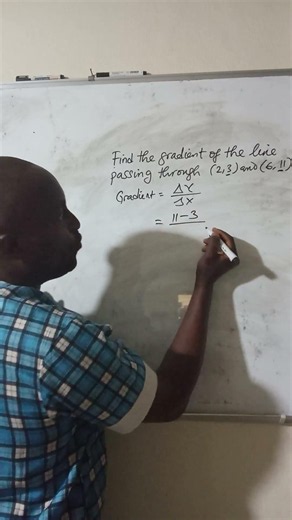 Find the gradient of the line
passing through (2,3) and (6,11)
Gradient = ΔY/ΔX
= 11-3